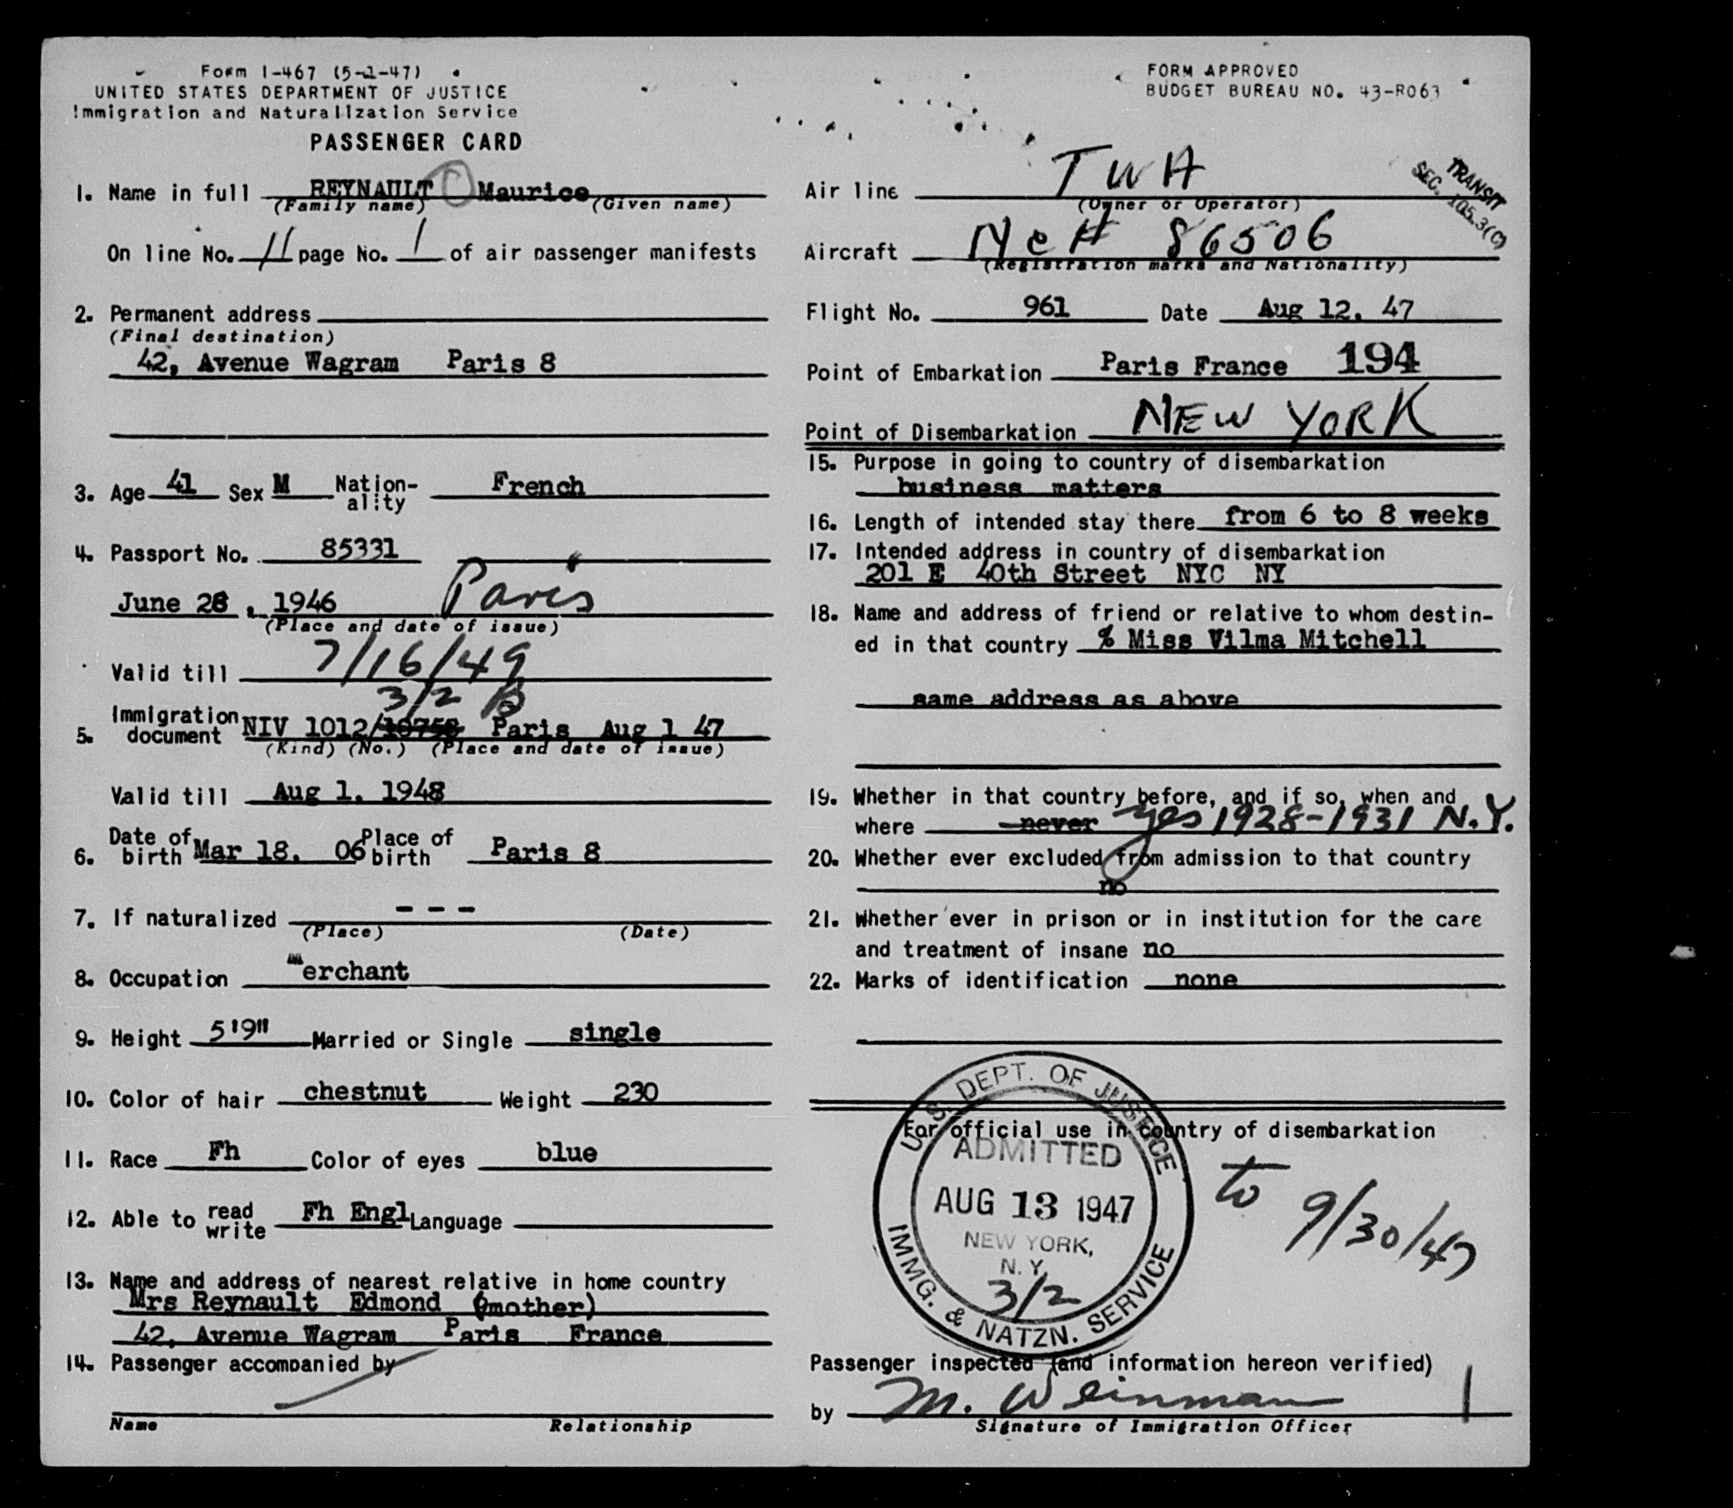 Form I-467 (5-1-47)
UNITED STATES DEPARTMENT OF JUSTICE
Immigration and Naturalization Service
PASSENGER CARD
FORM APPROVED
BUDGET BUREAU NO. 43-R063
1. Name in full REYNAULT C Maurice
(Family name) (Given name)
On line No. 11 page No. 1 of air passenger manifests
2. Permanent address
(Final destination)
42, Avenue Wagram Paris 8
3. Age 41 Sex M Nation-ality French
4. Passport No. 85331
June 28, 1946 Paris
(Place and date of issue)
Valid till 7/16/49
3/2
5. Immigration document NIV 1012/ Paris Aug 1 47
(Kind) (No.) (Place and date of issue)
Valid till Aug 1, 1948
6. Date of birth Mar 18, 06 Place of birth Paris 8
7. If naturalized - - -
(Place) (Date)
8. Occupation merchant
9. Height 5'9" Married or Single single
10. Color of hair chestnut Weight 230
11. Race Fh Color of eyes blue
12. Able to read write Fh Engl Language
13. Name and address of nearest relative in home country
Mrs Reynault Edmond (mother)
42, Avenue Wagram Paris France
14. Passenger accompanied by
Name Relationship
Air line TWA
(Owner or Operator)
TRANSIT
SEC. 105.3(C)
Aircraft 86506
(Registration marks and Nationality)
Flight No. 961 Date Aug 12, 47
Point of Embarkation Paris France 194
Point of Disembarkation NEW YORK
15. Purpose in going to country of disembarkation
business matters
16. Length of intended stay there from 6 to 8 weeks
17. Intended address in country of disembarkation
201 E 40th Street NYC NY
18. Name and address of friend or relative to whom destin-
ed in that country % Miss Vilma Mitchell
same address as above
19. Whether in that country before, and if so, when and
where never yes 1928-1931 N.Y.
20. Whether ever excluded from admission to that country
no
21. Whether ever in prison or in institution for the care
and treatment of insane no
22. Marks of identification none
For official use in country of disembarkation
U.S. DEPT. OF JUSTICE
ADMITTED
AUG 13 1947
NEW YORK,
N.Y.
3/2
IMMG. & NATZN. SERVICE
to 9/30/47
Passenger inspected (and information hereon verified)
by M. Weinman
Signature of Immigration Officer